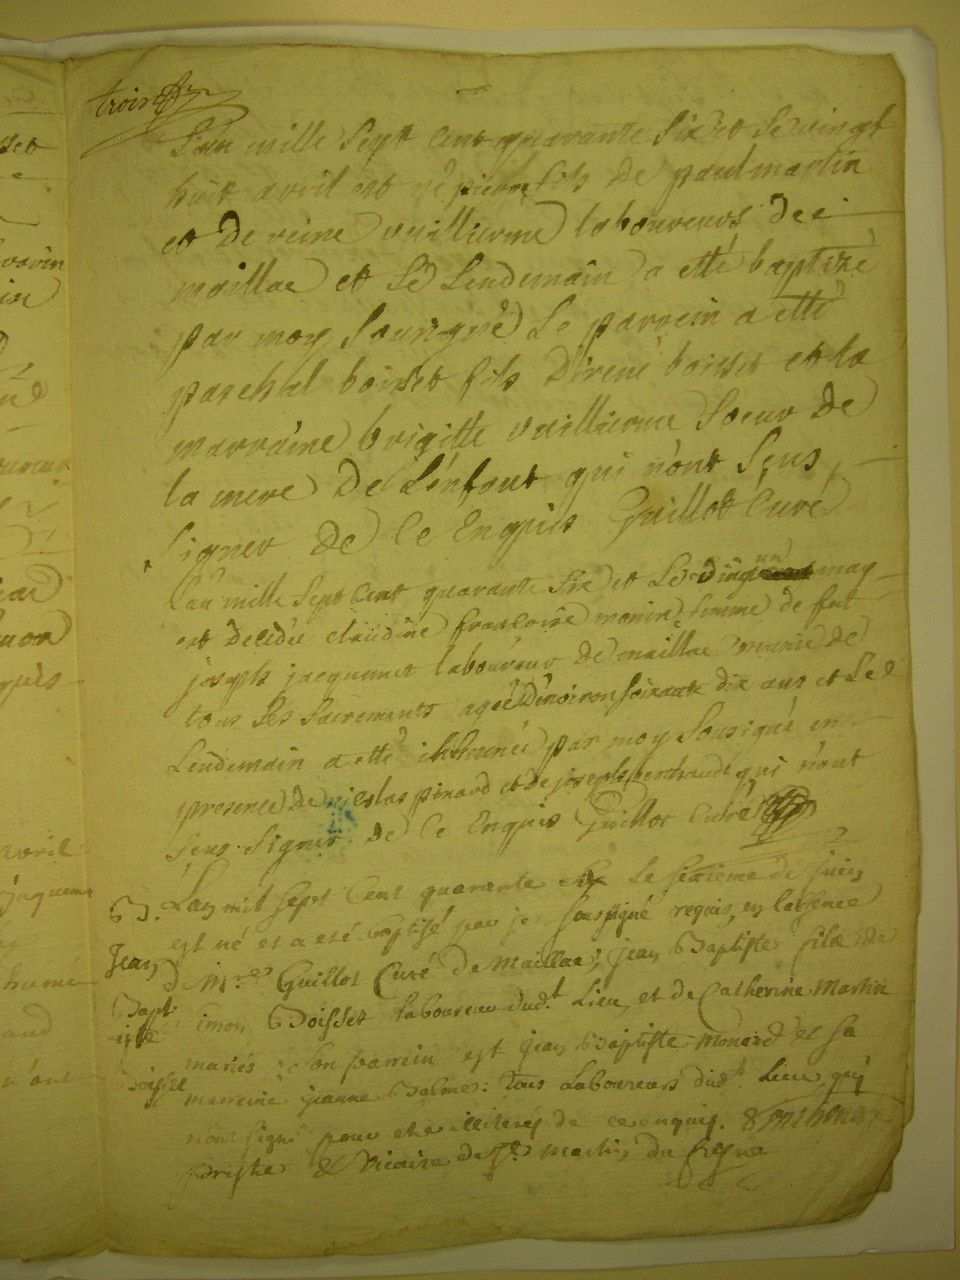 trois
L'an mille Sept Cent quarante Six et Le vingt
huit avril est né pierre fils De paul martin
et De reine vuillieme laboureurs De
maillac et Le Lendemain a etté baptizé
par moy Sousigné Le parrein a etté
paschal boisset fils Direné boisset et la
marraine brigitte vuillieme Soeur De
la mere De L'enfant qui n'ont Seus
Signer De Ce Enquis Guillot Curé
L'an mille Sept Cent quarante Six et Le vingt un may
est Decedée claudine francoise monin femme de feu
joseph jacquemet laboureur De maillac munie de
tous Ses Sacrements agée D'environ soixante dix ans et Le
Lendemain a etté inhumée par moy Sousigné en
presence De nicolas pinard et de joseph perchaude qui n'ont
Seus Signer De Ce Enquis Guillot Curé
B. L'an mil Sept Cent quarante Six Le Sixieme de Juin
est né et a eté baptisé par je soussigné requis, en labsence
Jean
d M.re Guillot Curé De Maillac, jean Baptiste fils de
Bapt
imon Boisset laboureur dud.t Lieu, et de Catherine Martin
iste
mariés; son parrein est jean Baptiste Monard et sa
Boisset
marreine jeanne Balme: tous Laboureurs dud.t Lieu qui
n'ont signé pour etre illiterés de ce enquis.
prestre & Vicaire de St. Martin du fresne